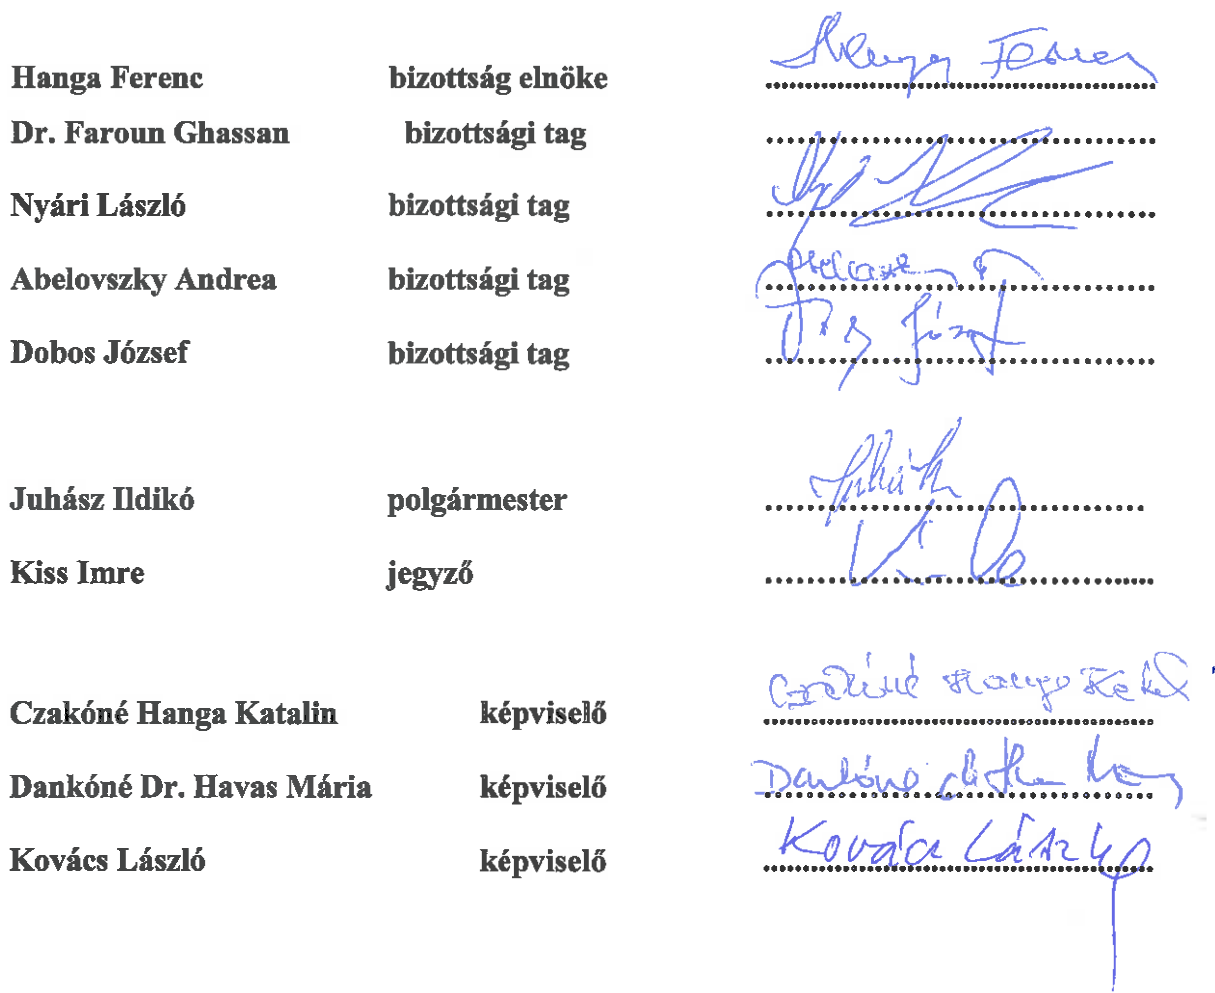 Hanga Ferenc bizottság elnöke Hanga Ferenc
Dr. Faroun Ghassan bizottsági tag
Nyári László bizottsági tag
Abelovszky Andrea bizottsági tag
Dobos József bizottsági tag József
Juhász Ildikó polgármester
Kiss Imre jegyző
Czakóné Hanga Katalin képviselő Czakóné Hanga
Dankóné Dr. Havas Mária képviselő Dankóné dr.
Kovács László képviselő Kovács László